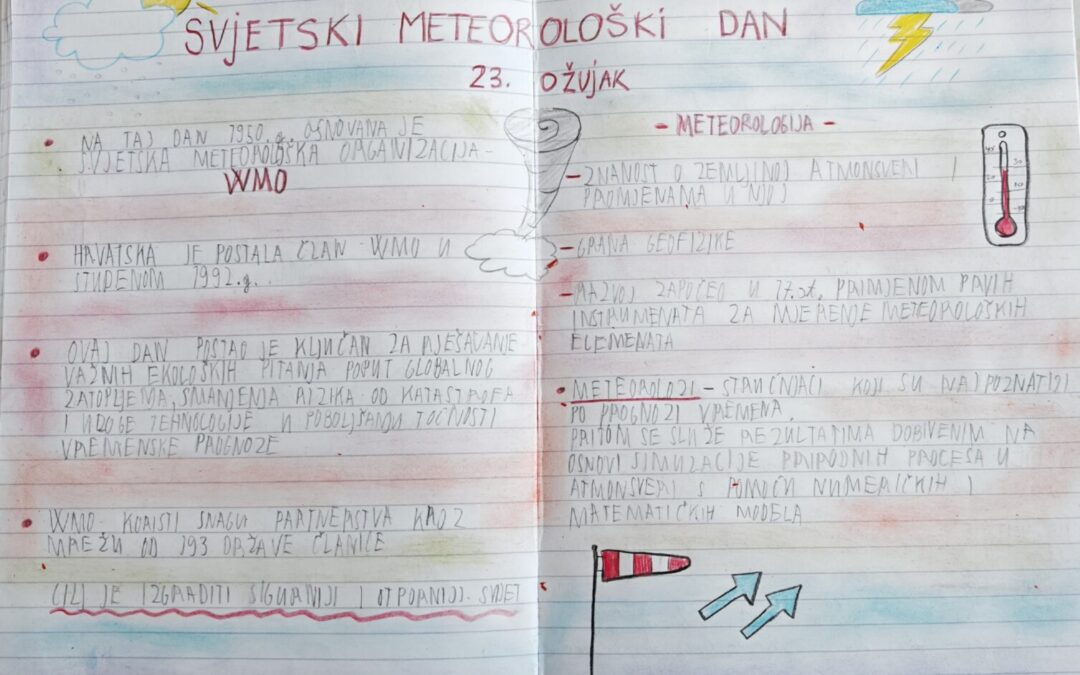 SVJETSKI METEOROLOŠKI DAN
23. OŽUJAK
• NA TAJ DAN 1950.g. OSNOVANA JE
SVJETSKA METEOROLOŠKA ORGANIZACIJA-
WMO
• HRVATSKA JE POSTALA ČLAN WMO U
STUDENOM 1992.g.
• OVAJ DAN POSTAO JE KLJUČAN ZA RJEŠAVANJE
VAŽNIH EKOLOŠKIH PITANJA POPUT GLOBALNOG
ZATOPLJENJA, SMANJENJA RIZIKA OD KATASTROFA
I ULOGE TEHNOLOGIJE U POBOLJŠANJU TOČNOSTI
VREMENSKE PROGNOZE
• WMO KORISTI SNAGU PARTNERSTVA KROZ
MREŽU OD 193 DRŽAVE ČLANICE
CILJ JE IZGRADITI SIGURNIJI I OTPORNIJI SVIJET
- METEOROLOGIJA -
- ZNANOST O ZEMLJINOJ ATMONSVERI I
PROMJENAMA U NJOJ
- GRANA GEOFIZIKE
- RAZVOJ ZAPOČEO U 17.st. PRIMJENOM PRVIH
INSTRUMENATA ZA MJERENJE METEOROLOŠKIH
ELEMENATA
• METEOROLOZI - STRUČNJACI KOJI SU NAJPOZNATIJI
PO PROGNOZI VREMENA.
PRITOM SE SLUŽE REZULTATIMA DOBIVENIM NA
OSNOVI SIMULACIJE PRIRODNIH PROCESA U
ATMONSVERI S POMOĆU NUMERIČKIH I
MATEMATIČKIH MODELA